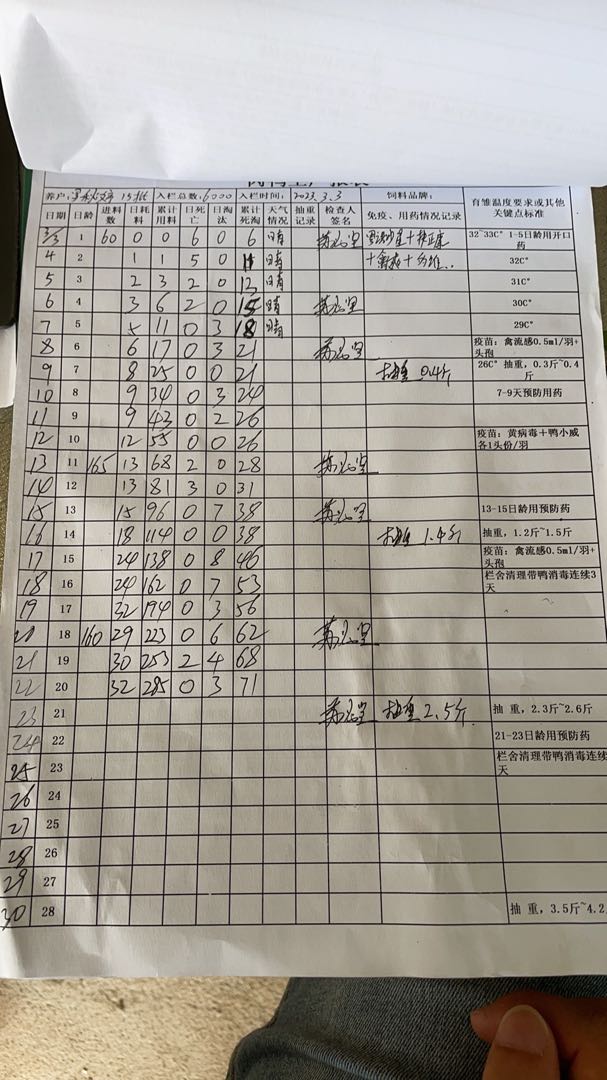 养户: 15批 入栏总数:6000 入栏时间: 2023.3.3 饲料品牌: 育雏温度要求或其他关键点标准
日期 日龄 进料数 日耗料 累计用料 日死亡 日淘汰 累计死淘 天气情况 抽重记录 检查人签名 免疫、用药情况记录
3/3 1 60 0 0 6 0 6 晴 32~33C° 1-5日龄用开口药
4 2 1 1 5 0 11 晴 32C°
5 3 2 3 2 0 13 晴 31C°
6 4 3 6 2 0 15 晴 30C°
7 5 5 11 0 3 18 晴 29C°
8 6 6 17 0 3 21 疫苗：禽流感0.5ml/羽+头孢
9 7 8 25 0 0 21 抽重 0.4斤 26C° 抽重，0.3斤~0.4斤
10 8 9 34 0 3 24 7-9天预防用药
11 9 9 43 0 2 26
12 10 12 55 0 0 26 疫苗：黄病毒＋鸭小威各1头份/羽
13 11 165 13 68 2 0 28
14 12 13 81 3 0 31
15 13 15 96 0 7 38 13-15日龄用预防药
16 14 18 114 0 0 38 抽重 1.4斤 抽重，1.2斤~1.5斤
17 15 24 138 0 8 46 疫苗：禽流感0.5ml/羽+头孢
18 16 24 162 0 7 53 栏舍清理带鸭消毒连续3天
19 17 32 194 0 3 56
20 18 160 29 223 0 6 62
21 19 30 253 2 4 68
22 20 32 285 0 3 71
23 21 抽重 2.5斤 抽 重，2.3斤~2.6斤
24 22 21-23日龄用预防药
25 23 栏舍清理带鸭消毒连续天
26 24
27 25
28 26
29 27
30 28 抽 重，3.5斤~4.2